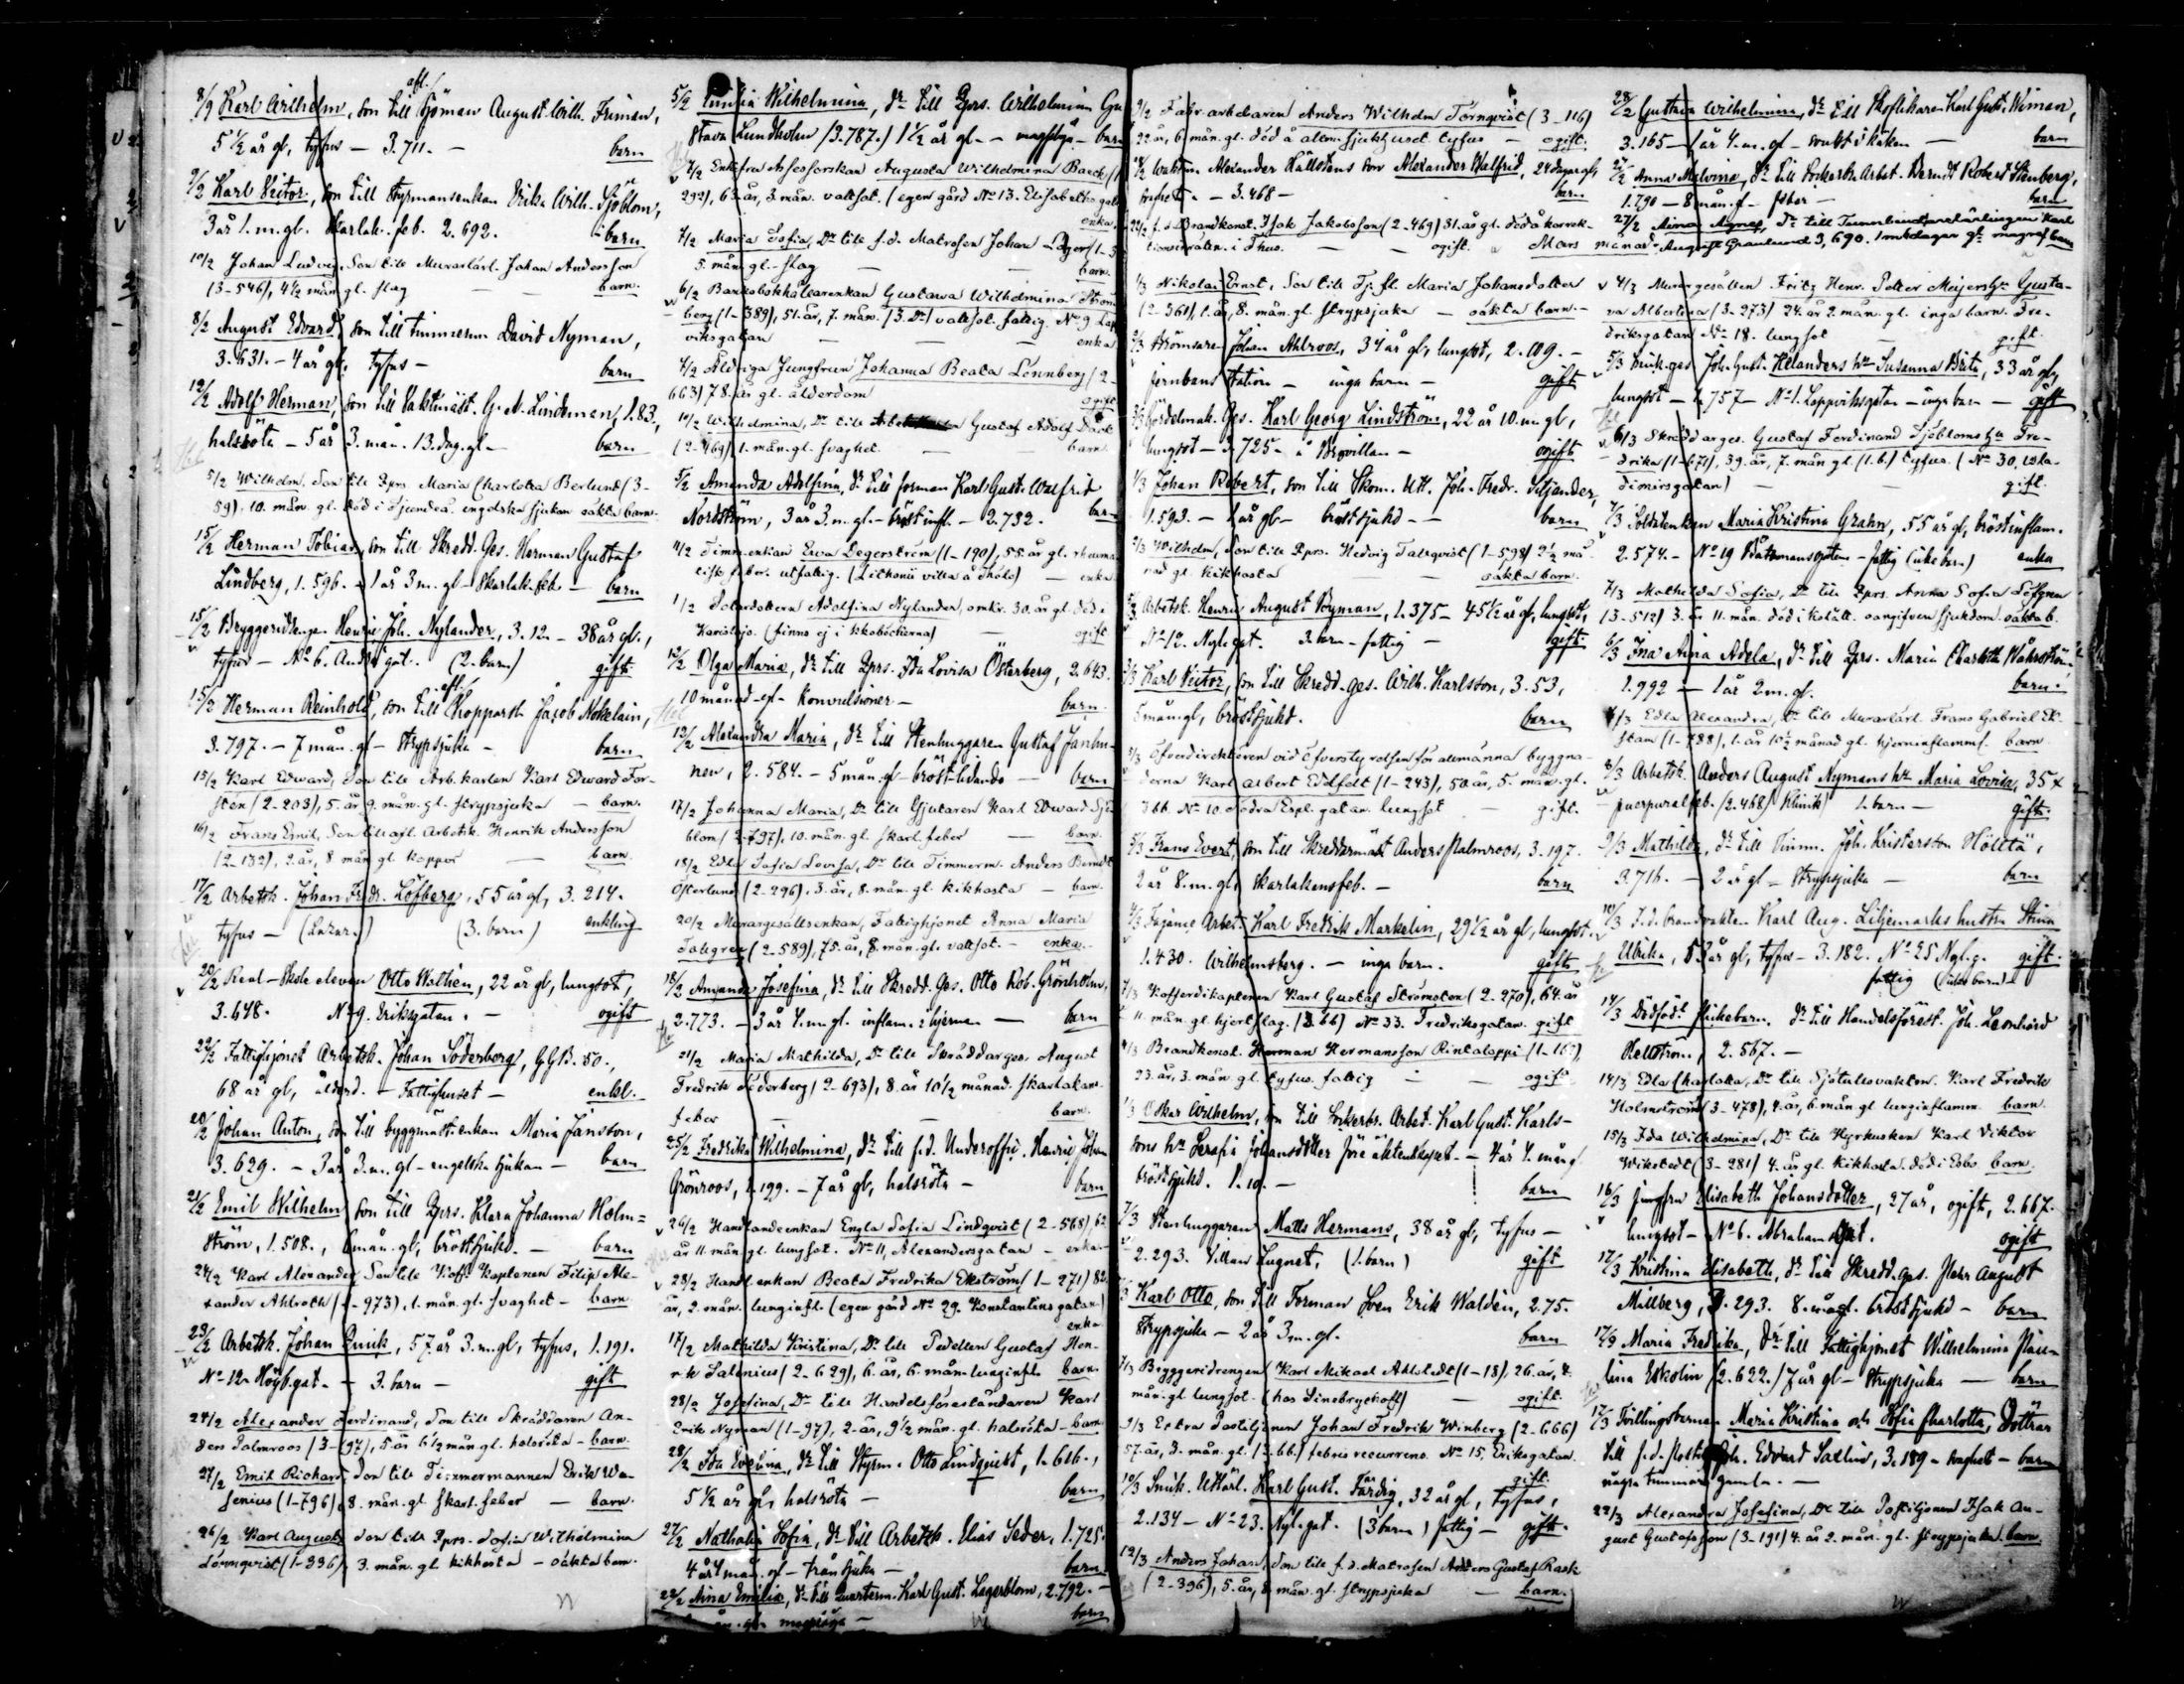 8/2 Karl Wilhelm, son till afl. Sjöman August Wilh. Friman,
5 1/2 år gl, tyfus - 3.711. - barn
9/2 Karl Victor, son till Styrmansenkan Erika Wilh. Sjöblom,
3 år 1. m. gl. Skarlak. feb. 2.692. - barn
10/2 Johan Ludvig, Son till Murarlärl. Johan Andersson
(3-546), 4 1/2 mån gl. slag - barn.
8/2 August Edvard, son till timmerm David Nyman,
3.631. - 4 år gl, tyfus - barn
12/2 Adolf Herman, son till Vaktmäst. G. A. Lindeman, 1.83,
halsröta - 5 år 3. mån. 13. dag. gl - barn
5/2 Wilhelm. Son till Pprs Maria Charlotta Berlund (3-
59), 10. mån. gl. död i Sjundeå. engelska sjukan oäkta barn.
15/2 Herman Tobias, son till Skredd. Ges. Herman Gustaf
Lindberg, 1.596. - 1 år 3 m. gl - Skarlak. feb. - barn
15/2 Bryggeridrengen Henric Joh. Nylander, 3.12. - 38 år gl.,
tyfus - No 6. Andrégat. (2. barn) gift
15/2 Herman Reinhold, son till afl. Kopparsl. Jacob Nokelain,
3.797. - 7 mån. gl - Strypsjuka - barn
15/2 Karl Edward, Son till Arb. karlen Karl Edward For-
sten (2-203), 5. år 9. mån. gl. strypsjuka - barn.
16/2 Frans Emil, Son till afl. Arbetsk. Henrik Andersson
(2-132), 2. år, 8 mån gl koppor - barn.
17/2 Arbetsk. Johan Fredr. Löfberg, 55 år gl, 3.214.
tyfus - (Lazar.) (3. barn) enkling
20/2 Real-Skole eleven Otto Wathén, 22 år gl, lungsot,
3.648. No 9. Eriksgatan. - ogift
22/2 Fattighjonet Arbetsk. Johan Söderborg, G.G.B. 50.,
68 år gl, ålderd. - Fattighuset - enkl.
20/2 Johan Anton, son till byggmäst. enkan Maria Jansson,
3.629. - 3 år 3. m. gl - engelska sjukan - barn
21/2 Emil Wilhelm son till Pprs. Klara Johanna Holm-
ström, 1.508., 6 mån. gl, bröstsjukd. - barn
24/2 Karl Alexander Son till Koff. Kaptenen Filip Ale-
xander Ahlroth (1-973), 1. mån. gl. svaghet - barn
23/2 Arbetsk. Johan Qvick, 57. år 3. m. gl, tyfus, 1.191.
No 12 Högb. gat. - 3. barn - gift
24/2 Alexander Ferdinand, Son till Skräddaren An-
ders Palmroos (3-197), 5. år 6 1/2 mån gl. halsröta - barn.
27/2 Emil Richard, Son till Timmermannen Erik Wa-
senius (1-796), 8. mån. gl. skarl. feber - barn.
26/2 Karl August, Son till Pprs. Sofia Wilhelmina
Lönnqvist (1-336), 3. mån. gl kikhosta - oäkta barn.
5/2 Emilia Wilhelmina, Dr till Pprs. Wilhelmina Gu
stava Lundholm (3.787.) 1 1/2 år gl. - barn
7/2 Enkefru Assessorskan Augusta Wilhelmina Baeck (1
292), 63 år, 3. mån. vattsot. (egen gård No 13. Elisabeths gat
enka.
7/2 Maria Sofia, Dr till f.d. Matrosen Johan (1-3
5. mån gl. slag - barn.
6/2 Bankobokhållarenkan Gustava Wilhelmina Ström
berg (1-389), 51. år, 7. mån. (3. Br) vattsot. fattig. No 9 Lap
viksgatan - enka
4/2 Åldriga Jungfrun Johanna Beata Lönnberg (2-
663) 78. år gl. ålderdom ogift
10/2 Wilhelmina, Dr till Gustaf Adolf
(2-469), 1. mån. gl. svaghet - barn.
5/2 Amanda Adolfina, Dr till forman Karl Gust. Walfrid
Nordström, 3 år 3. m. gl. - bröstinfl. - 2.732. barn
4/2 Timm. enkan Ewa Degerström (1-190), 55. år gl. rheuma
tisk feber. utfattig. (Lithonii villa å Thölö) - enka
1/2 Adolfina Nylander, omkr. 30. år gl. död i
Karislojo. (finns ej i kkoböckerna) ogift
12/2 Olga Maria, Dr till Pprs. Ida Lovisa Österberg, 2.643.
10 månad. gl - Konvulsioner - barn.
13/2 Alexandra Maria, Dr till Stenhuggaren Gustaf Janhu-
nen, 2.584. - 5 mån. gl bröst lidande - barn
17/2 Johanna Maria, Dr till Gjutaren Karl Edward Sjö
blom (2-797), 10. mån. gl skarl. feber - barn.
18/2 Edla Sofia Lovisa, Dr till Timmerm. Anders Berndt
Österlund (2-296), 3. år, 8. mån. gl. kikhosta - barn.
20/2 Murargesällsenkan, Fattighjonet Anna Maria
Tallgren (2-589), 75. år, 8. mån. gl. vattsot. - enka.
18/2 Amanda Josefina, Dr till Skredd. Ges. Otto Rob. Grönholm,
2.773. - 3 år 4. m. gl. inflam. i hjernan - barn
21/2 Maria Mathilda, Dr till Skräddarges. August
Fredrik Söderberg (2-693), 8. år 10 1/2 månad. skarlakans
feber - barn.
25/2 Fredrika Wilhelmina, Dr till f.d. Underoffic. Henric Johan
Grönroos, 1.199. - 7 år gl, halsröta - barn
26/2 Handlandeenkan Engla Sofia Lindqvist (2-568), 62
år 11. mån. gl. lungsot. No 11, Alexandersgatan - enka
28/2 Handl. enkan Beata Fredrika Ekström (1-271) 82
år, 2. mån. lunginfl. (egen gård No 29. Konstantins gatan)
enka
17/2 Mathilda Kristina, Dr till Pedellen Gustaf Hen-
rik Salenius (2-629), 6. år, 6. mån. lunginfl. barn.
28/2 Josefina, Dr till Handelsföreståndaren Karl
Erik Nyman (1-97), 2. år, 9 1/2 mån. gl. halsröta - barn
28/2 Ida Evelina, Dr till Styrm. Otto Lindquist, 1.616.,
5 1/2 år gl, halsröta - barn
27/2 Nathalia Sofia, Dr till Arbetsk. Elias Seder, 1.725.
4 år 4 mån. gl - Trånsjuka - barn
22/2 Aina Emilia, Dr till Quarterm. Karl Gust. Lagerblom, 2.792. -
barn
9/2 Fabr. arbetaren Anders Wilhelm Törnqvist (3-116)
22 år, 6 mån. gl. död å allm. sjukhuset tyfus - ogift.
18/2 Waktm. Alexander Källströms son Alexander Walfrid, 24 dagar gl,
- 3.468 - barn
22/2 f.d. Brandkonst. Isak Jakobsson (2-469) 31. år gl. död å korrek-
tionsinrättn. i Åbo. - ogift.
Mars månad.
1/3 Nikolai Ernst, Son till Tj. fl. Maria Johansdotter
(2-361), 1. år, 8. mån. gl. strypsjuka - oäkta barn. -
2/3 Johan Ahlroos, 34 år gl, lungsot, 2.109. -
jernbans station - inga barn - gift
3/3 Gördelmak. Ges. Karl Georg Lindström, 22 år 10. m. gl,
lungsot - 3.725 - ogift
1/3 Johan Robert, son till Skom. Utl. Joh. Fredr. Siljander,
1.593. - 1 år gl - bröstsjukd - barn
2/3 Wilhelm, Son till Pprs. Hedvig Tallqvist (1-598) 2 1/2 må
nad gl. kikhosta - oäkta barn.
Arbetsk. Henric August Byman, 1.375 - 45 1/2 år gl, lungsot,
No 12. Nyl. gat. 3. barn - fattig - gift
Karl Victor, son till Skredd. ges. Wilh. Karlsson, 3.53,
5 mån. gl, bröstsjukd. barn
3/3 Öfverdirektören vid Öfverstyrelsen för allmänna byggna
derna Karl Albert Edelfelt (1-243), 50. år, 5. mån. gl.
366 No 10. Södra Espl. gatan. lungsot - gift.
5/3 Frans Evert, son till Skreddarmäst Anders Palmroos, 3.197.
2 år 8. m. gl, skarlakansfeb. - barn
4/3 Fajance Arbet. Karl Fredrik Markelin, 29 1/2 år gl, lungsot.
1.430. Wilhelmsberg. - inga barn. gift
7/3 Kofferdikaptenen Karl Gustaf Strömsten (2-270), 64. år
11. mån. gl. hjertslag. (3.66) No 33. Fredriksgatan. gift
4/3 Brandkonst. Herman Hermansson Rintaloppi (1-167),
23. år, 3. mån. gl. tyfus. fattig - ogift
Oskar Wilhelm, son till Sockerbr. Arbet. Karl Gust. Karls-
sons hu Serafia Johansdotter före äktenskapet. - 4 år 4. mån gl
bröstsjukd. 1.10. - barn
7/3 Stenhuggaren Matts Hermans, 38 år gl, tyfus -
2.293. Villan Lugnet, (1. barn) gift
7/3 Karl Otto, son till Forman Sven Erik Waldén, 2.75.
Strypsjuka - 2 år 3 m. gl. barn
7/3 Bryggeridrengen Karl Mikael Ahlstedt (1-18), 26. år, 4.
mån. gl lungsot. (hos Sinebrychoff) - ogift.
9/3 Extra Postiljonen Johan Fredrik Winberg (2-666)
57. år, 3. mån. gl. (3.66.) febris recurrens. No 15, Eriksgatan.
gift.
10/3 Snick. Utlärl. Karl Gust. Färdig, 32 år gl, tyfus,
2.134 - No 23. Nyl. gat. (3 barn) fattig - gift.
12/3 Anders Johan, Son till f.d. Matrosen Anders Gustaf Rask
(2-396), 5. år, 8. mån. gl. strypsjuka - barn.
28/2 Gustava Wilhelmina, Dr till Skoflikaren Karl Gust. Wiman,
3.165 - 1 år 4. m. gl - barn
25/2 Anna Malvina, Dr till Sockerbr. Arbet. Berndt Robert Stenberg,
1.790 - 8 mån. gl - feber - barn
27/2 Alma Agnes, Dr till Timmerlärlingen Karl
August Granlund 3,690. barn
4/3 Murargesällen Fritz Henr. Petter Meijers hu Gusta-
va Albertina (3-273) 24. år 2 mån. gl. inga barn. Fre-
driksgatan No 18. lungsot gift.
5/3 Joh. Gust. Helanders hu Susanna Brita, 33 år gl,
lungsot - 1.757 - No 1. Lappviksgatan - inga barn - gift
6/3 Skräddarges. Gustaf Ferdinand Sjöbloms hu Fre-
drika (1-671), 39. år, 7. mån gl. (1. b.) tyfus. (No 30, Wla-
dimirsgatan) - gift.
7/3 Soldatenkan Maria Kristina Grahn, 55 år gl, bröstinflam.
2.574. - No 19 Båtsmansgatan - fattig (icke barn) enka
7/3 Mathilda Sofia, Dr till Pprs. Anna Sofia Löfgren
(3-512) 3. år 11. mån. död i Kslätt. oangifven sjukdom. oäkta b.
6/3 Ina Aina Adela, Dr till Pprs. Maria Charlotta Wåhrström,
1.992 - 1 år 2 m. gl. barn.
4/3 Edla Alexandra, Dr till Murarlärl. Frans Gabriel Ek-
stam (1-788), 1. år 10 1/2 månad gl. hjerninflamms. barn
8/3 Arbetsk. Anders August Nymans hu Maria Lovisa, 35
puerpuralfeb. (2.468) Klinik) 1. barn - gift.
9/3 Mathilda, Dr till Timm. Joh. Kristersson Hölttä,
3.716. - 2 år gl - Strypsjuka - barn
10/3 f.d. brandvakten Karl Aug. Liljemarks hustru Stina
Ulrika, 53 år gl, tyfus - 3.182. No 25 Nyl. g. gift.
fattig (icke barn)
14/3 Dödfödt flickebarn, Dr till Handelsförest. Joh. Leonhard
Hellström, 2.567. -
14/3 Edla Charlotta, Dr till Sjötullsvaktm. Karl Fredrik
Holmström (3-478), 4. år, 6 mån. gl lunginflamm. barn.
15/3 Ida Wilhelmina, Dr till Hyrkusken Karl Viktor
Wikstedt (3-281) 4. år gl. kikhosta. död i Esbo barn.
16/3 jungfru Elisabeth Johansdotter, 27 år, ogift, 2.667.
lungsot - No 6. Abrahams gat. ogift
12/3 Kristina Elisabeth, Dr till Skredd. ges. Pehr August
Millberg, 3.293. 8. mån gl. bröstsjukd - barn
17/3 Maria Fredrika, Dr till Fattighjonet Wilhelmina Pau-
lina Eskolin (2.622.) 7 år gl - Strypsjuka - barn
17/3 Tvillingsbarnen Maria Kristina och Sofia Charlotta, Döttrar
till f.d. Joh. Edvard Sallin, 3.189 - svaghet - barn
några timmar gamla. -
22/3 Alexandra Josefina, Dr till Postiljonen Isak Au-
gust Gustafsson (3-191) 4. år 2. mån. gl. strypsjuka. barn.